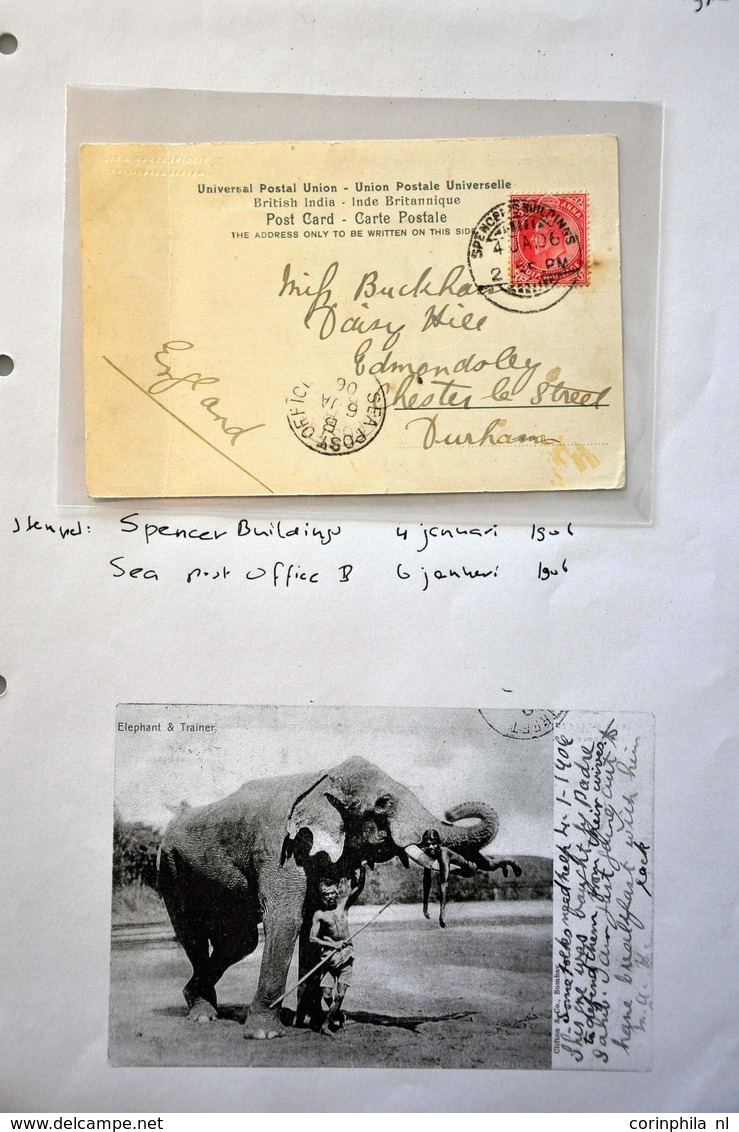 Universal Postal Union - Union Postale Universelle
British India - Inde Britannique
Post Card - Carte Postale
THE ADDRESS ONLY TO BE WRITTEN ON THIS SIDE
SPENCER'S BUILDINGS
4 JA 06
2 PM
Miss Buckham
Daisy Hill
Edmondsley
Chester le Street
Durham
England
SEA POST OFFICE
6 JA
06
Stempel: Spencer Buildings 4 januari 1906
Sea post office B 6 januari 1906
Elephant & Trainer.
Clifton & Co., Bombay
Some folks need help 4-1-1906
This one was bought by Padre
to defend them from their wives
Sahib. I am just going out to
breakfast with him
M.A.
corinphila nl